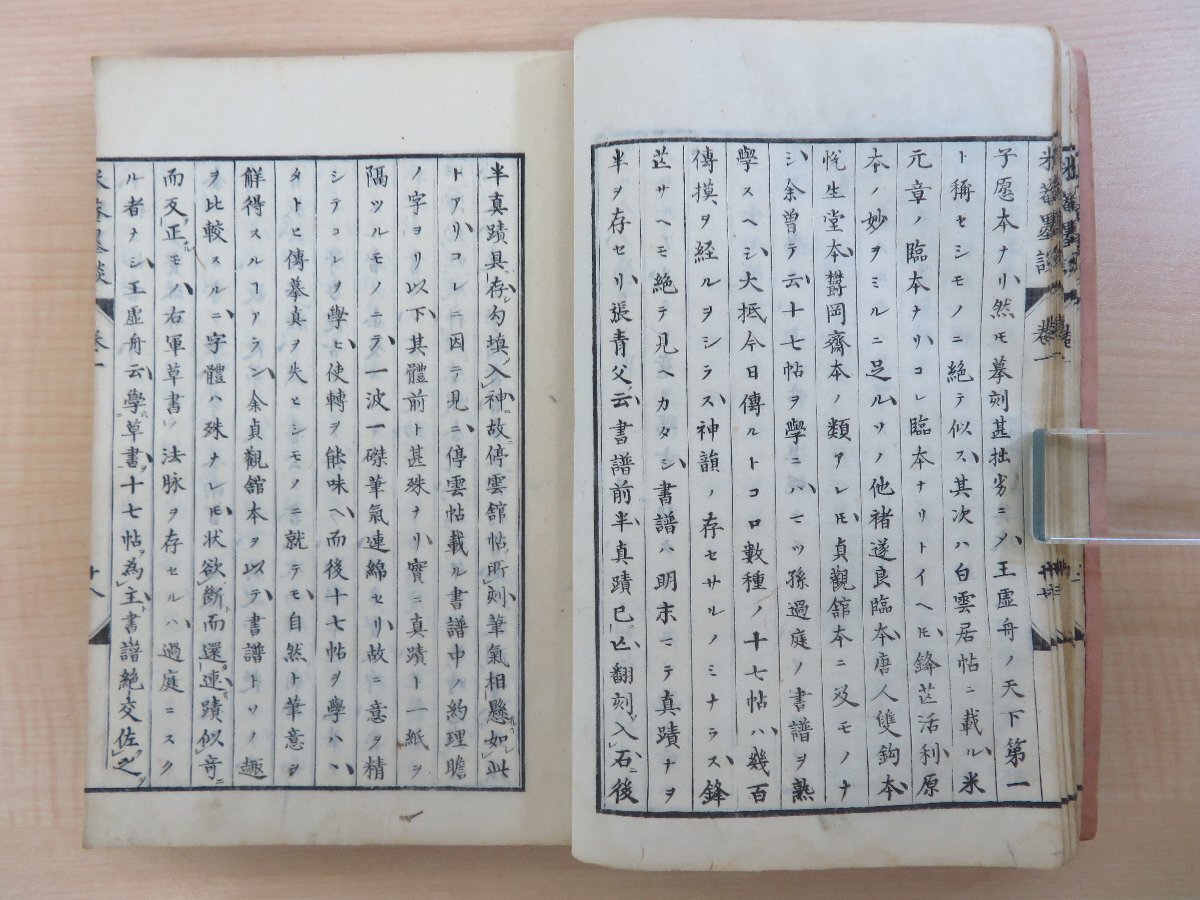 米菴墨談 卷一
子愿本ナリ然モ摹刻甚拙劣ニ〆王虚舟ノ天下第一
ト稱セシモノニ絶テ似ス其次ハ白雲居帖ニ載ル米
元章ノ臨本ナリコレ臨本ナリトイヘ𪜈鋒芒活利原
本ノ妙ヲミルニ足ルソノ他褚遂良臨本唐人雙鈎本
悅生堂本欝岡齋本ノ類アレ𪜈貞觀舘本ニ及モノナ
シ余曾テ云十七帖ヲ學ニハマツ孫過庭ノ書譜ヲ熟
學スヘシ大抵今日傳ルトコロ數種ノ十七帖ハ幾百
傳摸ヲ経ルヲシラス神韻ノ存セサルノミナラス鋒
芒サヘモ絶テ見ヘカタシ書譜ハ明末マテ真蹟ナヲ
半ヲ存セリ張青父云書譜前半真蹟已亡翻刻入石後
半真蹟具存勾填入神故停雲舘帖所刻筆氣相懸如此
トアリコレニ因テ見ニ停雲帖載ル書譜中ノ約理贍
ノ字ヨリ以下其體前ト甚殊ナリ實ニ真蹟ト一紙ヲ
隔ツルモノニテ一波一磔筆氣連綿セリ故ニ意ヲ精
シテコレヲ學ヒ使轉ヲ能味ヘ而後十七帖ヲ學ハヽ
タトヒ傳摹真ヲ失ヒシモノニ就テモ自然ト筆意ヲ
觧得スルヿアラン余貞觀舘本ヲ以テ書譜トソノ趣
ヲ比較スルニ字體ハ殊ナレ𪜈状欲斷而還連蹟似奇
而反正モノ右軍草書ノ法脉ヲ存セルハ過庭ニスク
ル者ナシ王虚舟云學草書十七帖為主書譜絶交佐之
米菴墨談 卷一 十八